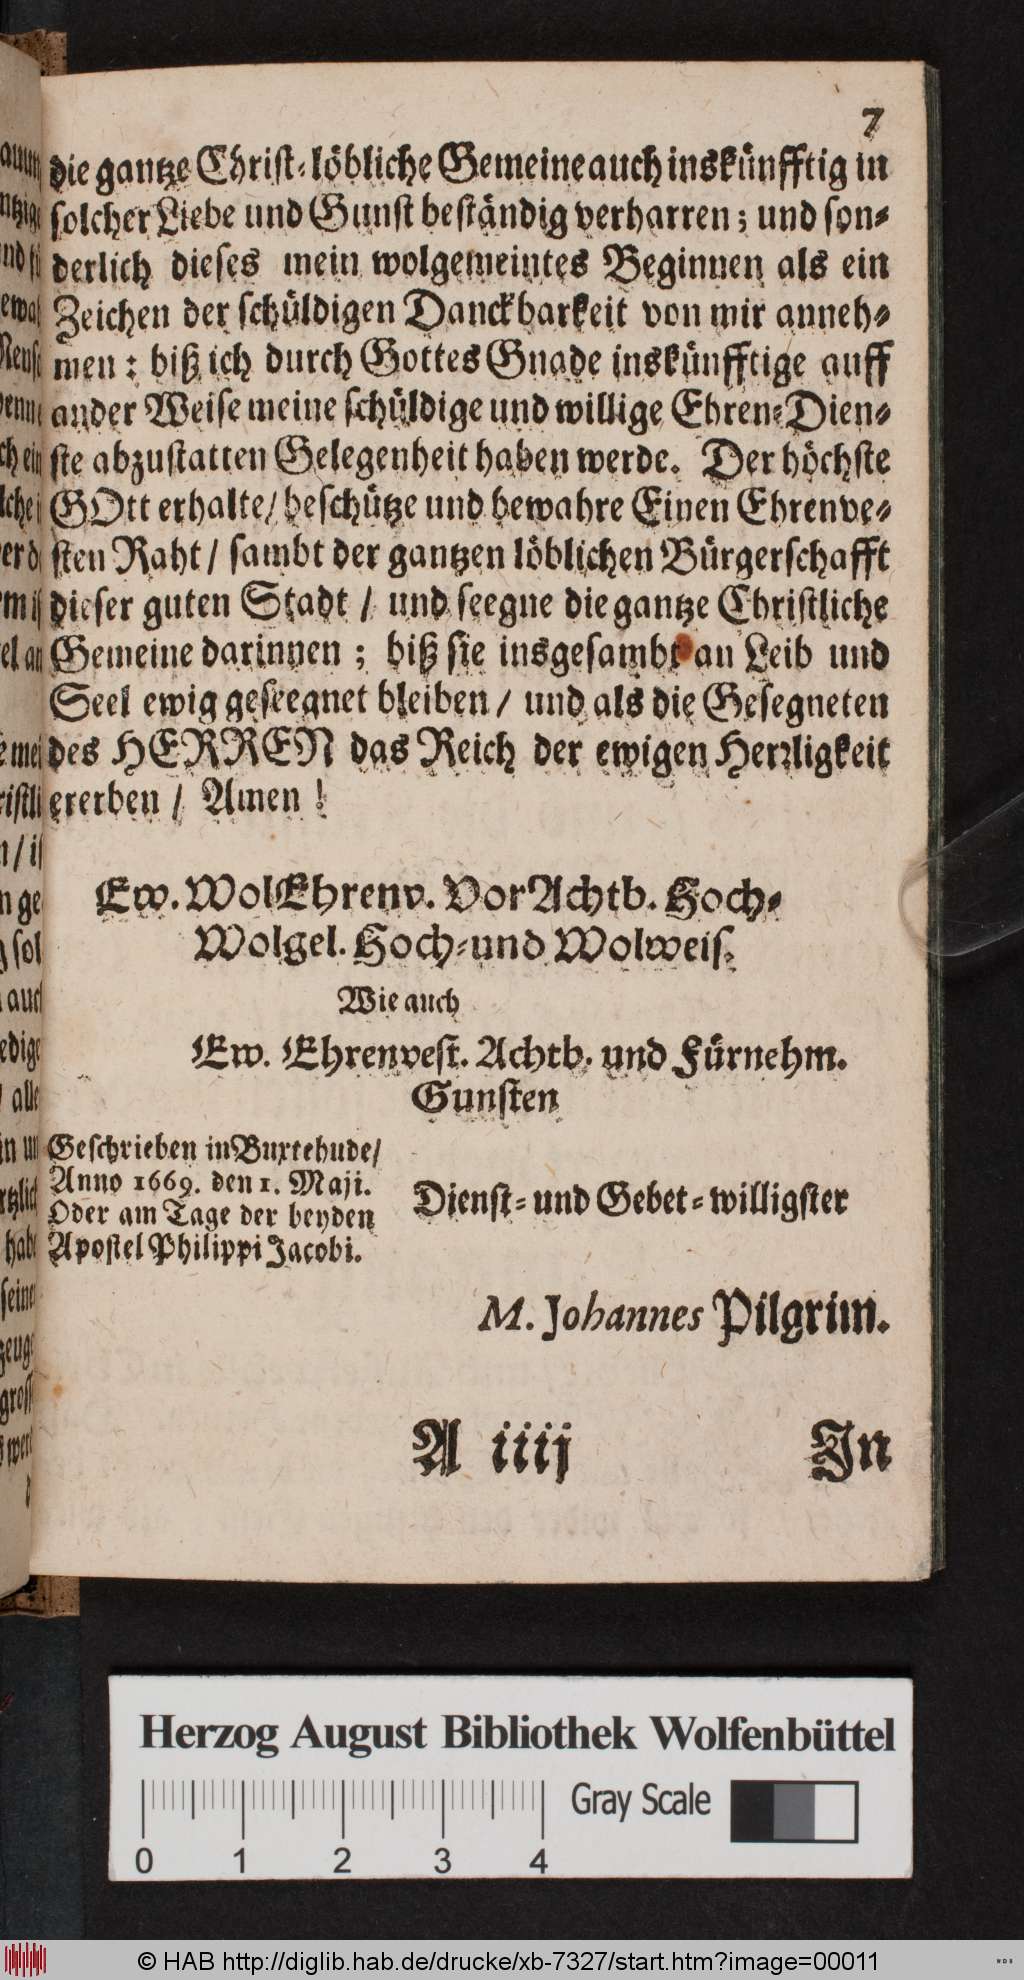 7
die gantze Christ-löbliche Gemeine auch inskünfftig in
solcher Liebe und Gunst beständig verharren; und son-
derlich dieses mein wolgemeintes Beginnen als ein
Zeichen der schüldigen Danckbarkeit von mir anneh-
men: biß ich durch Gottes Gnade inskünfftige auff
ander Weise meine schüldige und willige Ehren-Dien-
ste abzustatten Gelegenheit haben werde. Der höchste
GOtt erhalte/ beschütze und bewahre Einen Ehrenve-
sten Raht/ sambt der gantzen löblichen Bürgerschafft
dieser guten Stadt/ und seegne die gantze Christliche
Gemeine darinnen; biß sie insgesambt an Leib und
Seel ewig geseegnet bleiben/ und als die Gesegneten
des HERREN das Reich der ewigen Herrligkeit
ererben/ Amen!
Ew. WolEhrenv. VorAchtb. Hoch-
Wolgel. Hoch-und Wolweis.
Wie auch
Ew. Ehrenvest. Achtb. und Fürnehm.
Gunsten
Geschrieben in Buxtehude/
Anno 1669. den 1. Maji.
Oder am Tage der beyden
Apostel Philippi Jacobi.
Dienst- und Gebet-willigster
M. Johannes Pilgrim.
A iiij
In
Herzog August Bibliothek Wolfenbüttel
Gray Scale
0 1 2 3 4
© HAB http://diglib.hab.de/drucke/xb-7327/start.htm?image=00011